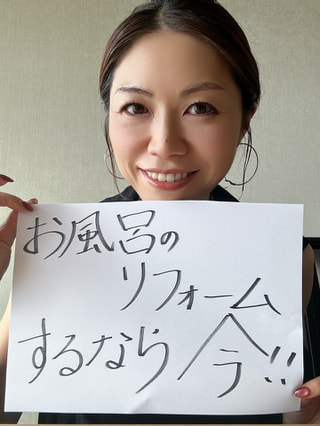 お風呂の
リフォーム
するなら今!!